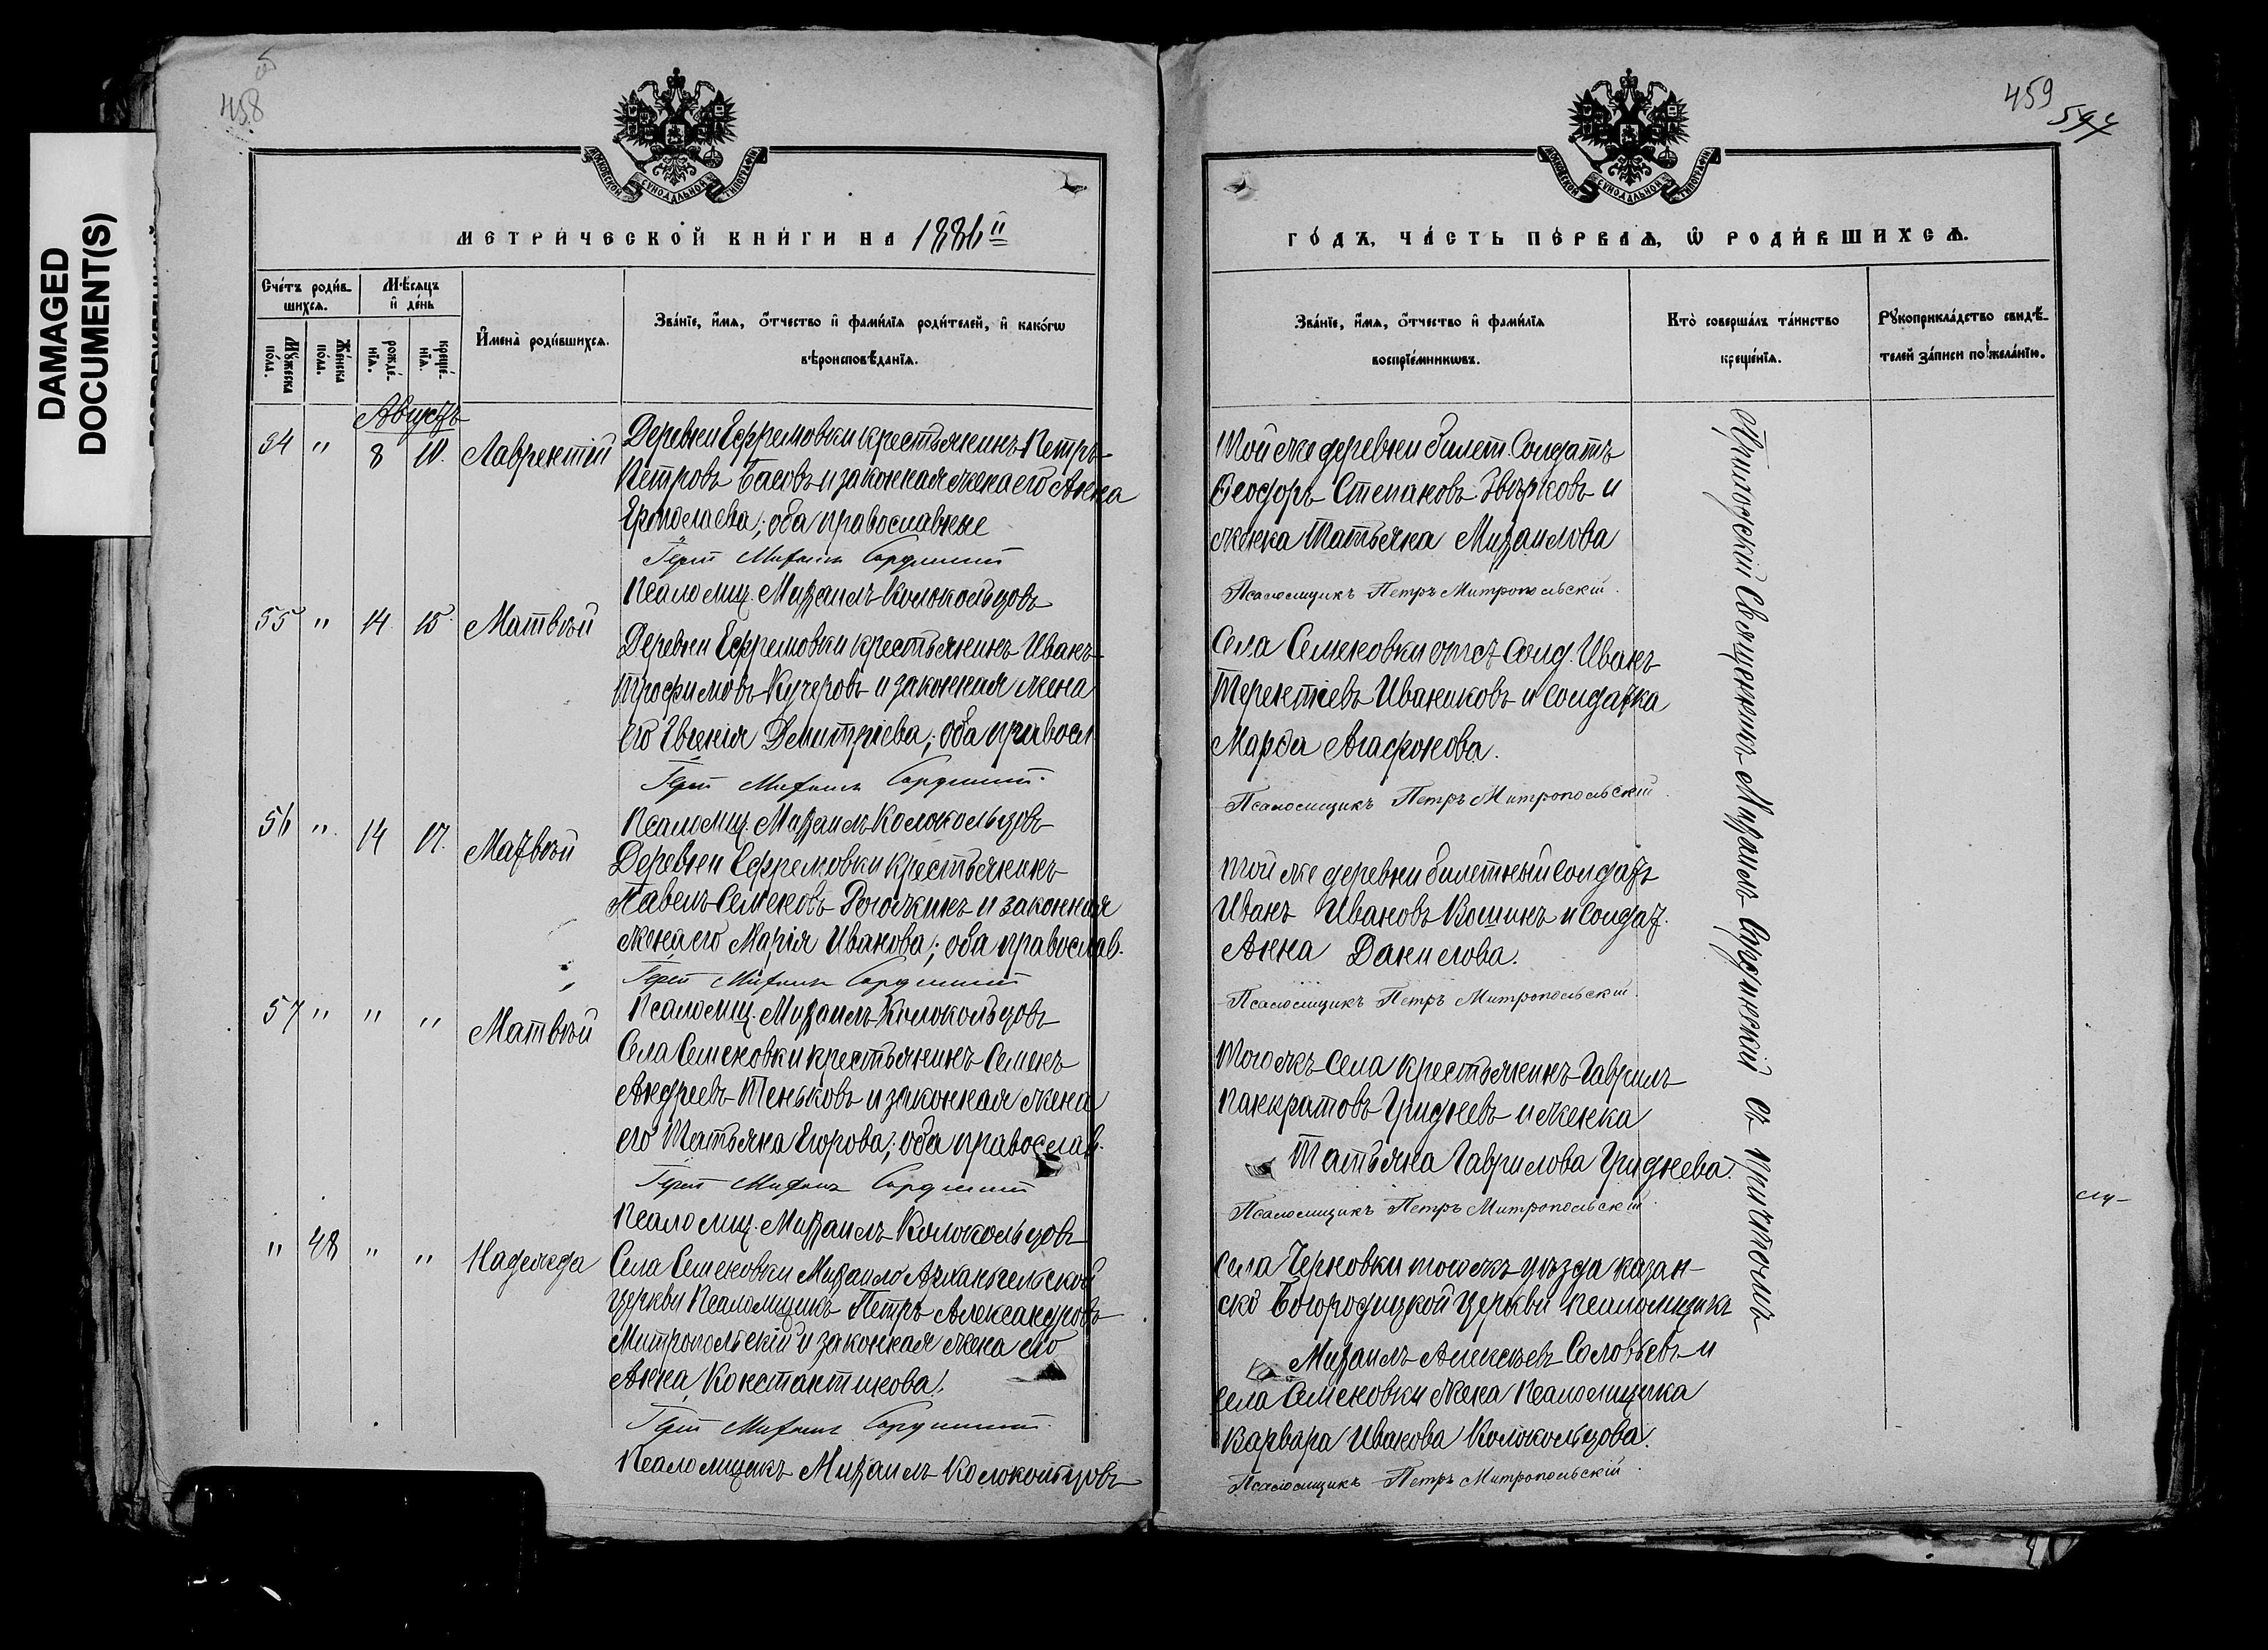 DAMAGED
DOCUMENT(S)
458
МОСКОВСКОЙ СѴНОДАЛЬНОЙ ТИПОГРАФІИ
МЕТРИ́ЧЕСКОЙ КНИ́ГИ НА 1886й
Сче́тъ роди́в-
шихсѧ.
Мѣ́сѧцъ
и҆ де́нь
Мꙋ́жеска
по́ла.
Же́нска
по́ла.
рожде́-
нїѧ.
креще́-
нїѧ.
И҆мена̀ роди́вшихсѧ.
Зва́нїе, и҆́мѧ, ѻ҆́тчество и҆ фами́лїѧ роди́телей, и҆ како́гѡ
вѣроисповѣ́данїѧ.
Августъ
54 " 8 10. Лаврентій
Деревни Ефремовки крестьянинъ Петръ
Петровъ Басовъ и законная жена его Анна
Ермолаева; оба православные
Іерей Михаилъ
Псаломщ. Михаилъ Колокольцовъ
55 " 14 15. Матвѣй
Деревни Ефремовки крестьянинъ Иванъ
Трофимовъ Кучеровъ и законная жена
его Евгенія Димитріева; оба правосл
Іерей Михаилъ
Псаломщ. Михаилъ Колокольцовъ
56 " 14 17. Матвѣй
Деревни Ефремовки крестьянинъ
Павелъ Семеновъ Рогожкинъ и законная
жена его Марія Иванова; оба православ.
Іерей Михаилъ
Псаломщ. Михаилъ Колокольцовъ
57 " " " Матвѣй
Села Семеновки крестьянинъ Семенъ
Андреевъ Теньковъ и законная жена
его Татьяна Егорова; оба православ.
Іерей Михаилъ
Псаломщ. Михаилъ Колокольцовъ
" 48 " " Надежда
Села Семеновки Михаило Архангельской
церкви Псаломщикъ Петръ Александровъ
Митропольскій и законная жена его
Анна Константинова.
Іерей Михаилъ
Псаломщикъ Михаилъ Колокольцовъ
459
597
МОСКОВСКОЙ СѴНОДАЛЬНОЙ ТИПОГРАФІИ
ГО́ДЪ, ЧА́СТЬ ПЕ́РВАѦ, Ѡ҆ РОДИ́ВШИХСѦ.
Зва́нїе, и҆́мѧ, ѻ҆́тчество и҆ фами́лїѧ
воспрїе́мникѡвъ.
Кто̀ соверша́лъ та́инство
креще́нїѧ.
Рꙋкоприкла́дство свидѣ́-
телей за́писи по жела́нїю.
Той же деревни билет. Солдатъ
Ѳеодоръ Степановъ Звѣрковъ и
женка Татьяна Михаилова
Псаломщикъ Петръ Митропольскій.
Села Семеновки отст. Солд. Иванъ
Терентіевъ Иванниковъ и солдатка
Марѳа Агафонова.
Псаломщикъ Петръ Митропольскій.
Той же деревни билетный солдатъ
Иванъ Ивановъ Кошинъ и солдат.
Анна Данилова.
Псаломщикъ Петръ Митропольскій.
Тогожъ села крестьянинъ Гавріилъ
Панкратовъ Гридневъ и женка
Татьяна Гаврилова Гриднева.
Псаломщикъ Петръ Митропольскій.
Села Черновки тогожъ уѣзда Казан-
ско Богородицкой церкви псаломщикъ
Михаилъ Алексѣевъ Соловьевъ и
села Семеновки жена Псаломщика
Варвара Иванова Колокольцова.
Псаломщикъ Петръ Митропольскій.
Приходскій Священникъ Михаилъ съ причтомъ